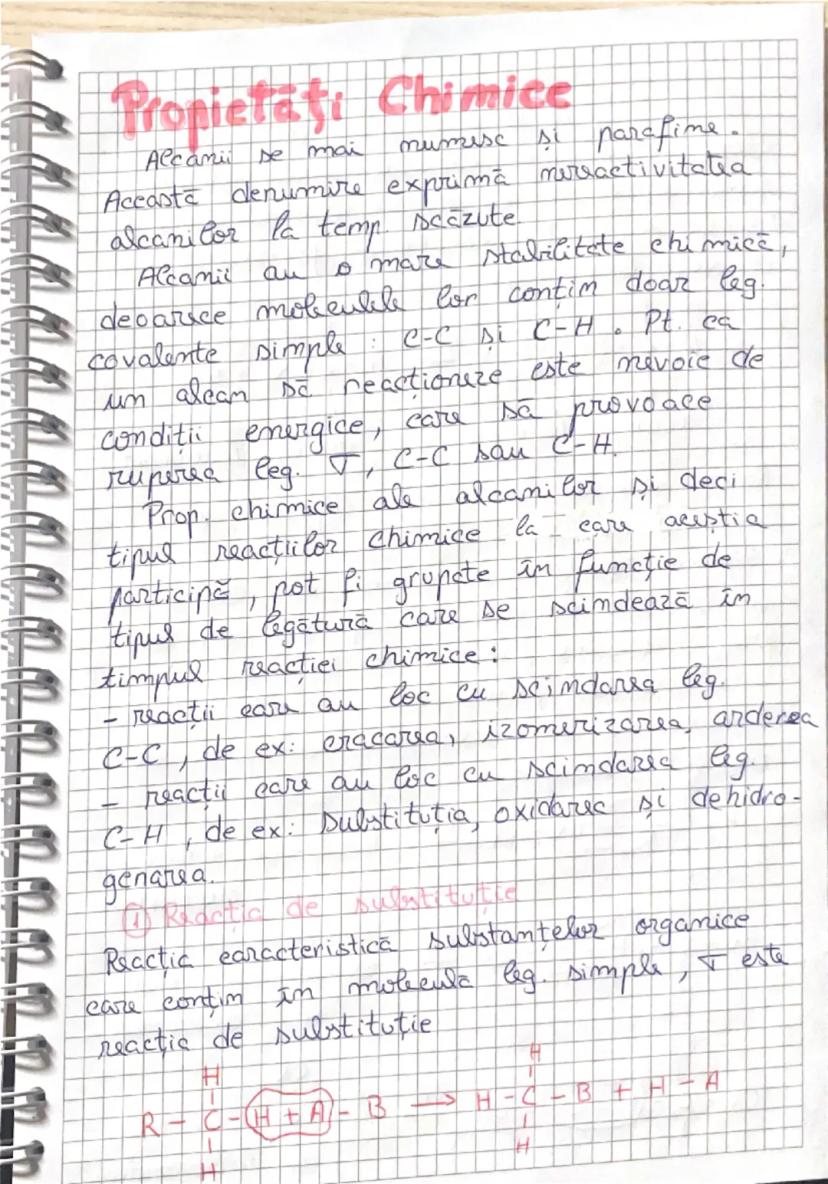 Propietăți Chimice
Alcanii se mai numesc și parafine.
Această denumire exprimă nereactivitatea
alcanilor la temp. scăzute.
Alcanii au o mare stabilitate chimică,
deoarece moleculele lor conțin doar leg.
covalente simple : C-C și C-H. Pt. ca
un alcan să reacționeze este nevoie de
condiții energice, care să provoace
ruperea leg. σ, C-C sau C-H.
Prop. chimice ale alcanilor și deci
tipul reacțiilor chimice la care aceștia
participă, pot fi grupate în funcție de
tipul de legătură care se scindează în
timpul reacției chimice:
- reacții care au loc cu scindarea leg.
C-C, de ex: cracarea, izomerizarea, arderea
- reacții care au loc cu scindarea leg.
C-H, de ex: substituția, oxidarea și dehidro-
genarea.
① Reacția de substituție
Reacția caracteristică substanțelor organice
care conțin în moleculă leg. simple, σ este
reacția de substituție
H H
R - C - H + A - B → H - C - B + H - A
H H